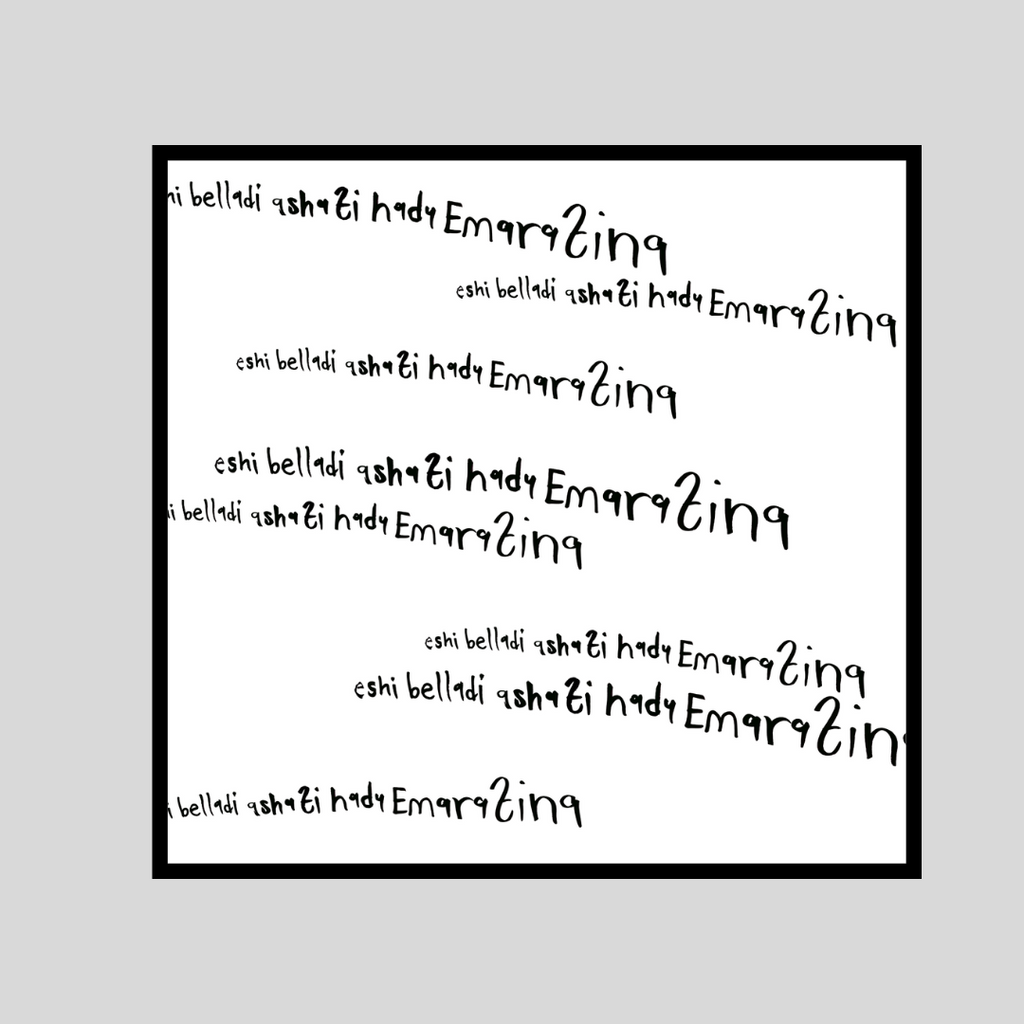 hi belladi ashati hady Emaratina
eshi belladi ashati hady Emaratina
eshi belladi ashati hady Emaratina
eshi belladi ashati hady Emaratina
i belladi ashati hady Emaratina
eshi belladi ashati hady Emaratina
eshi belladi ashati hady Emaratin
i belladi ashati hady Emaratina